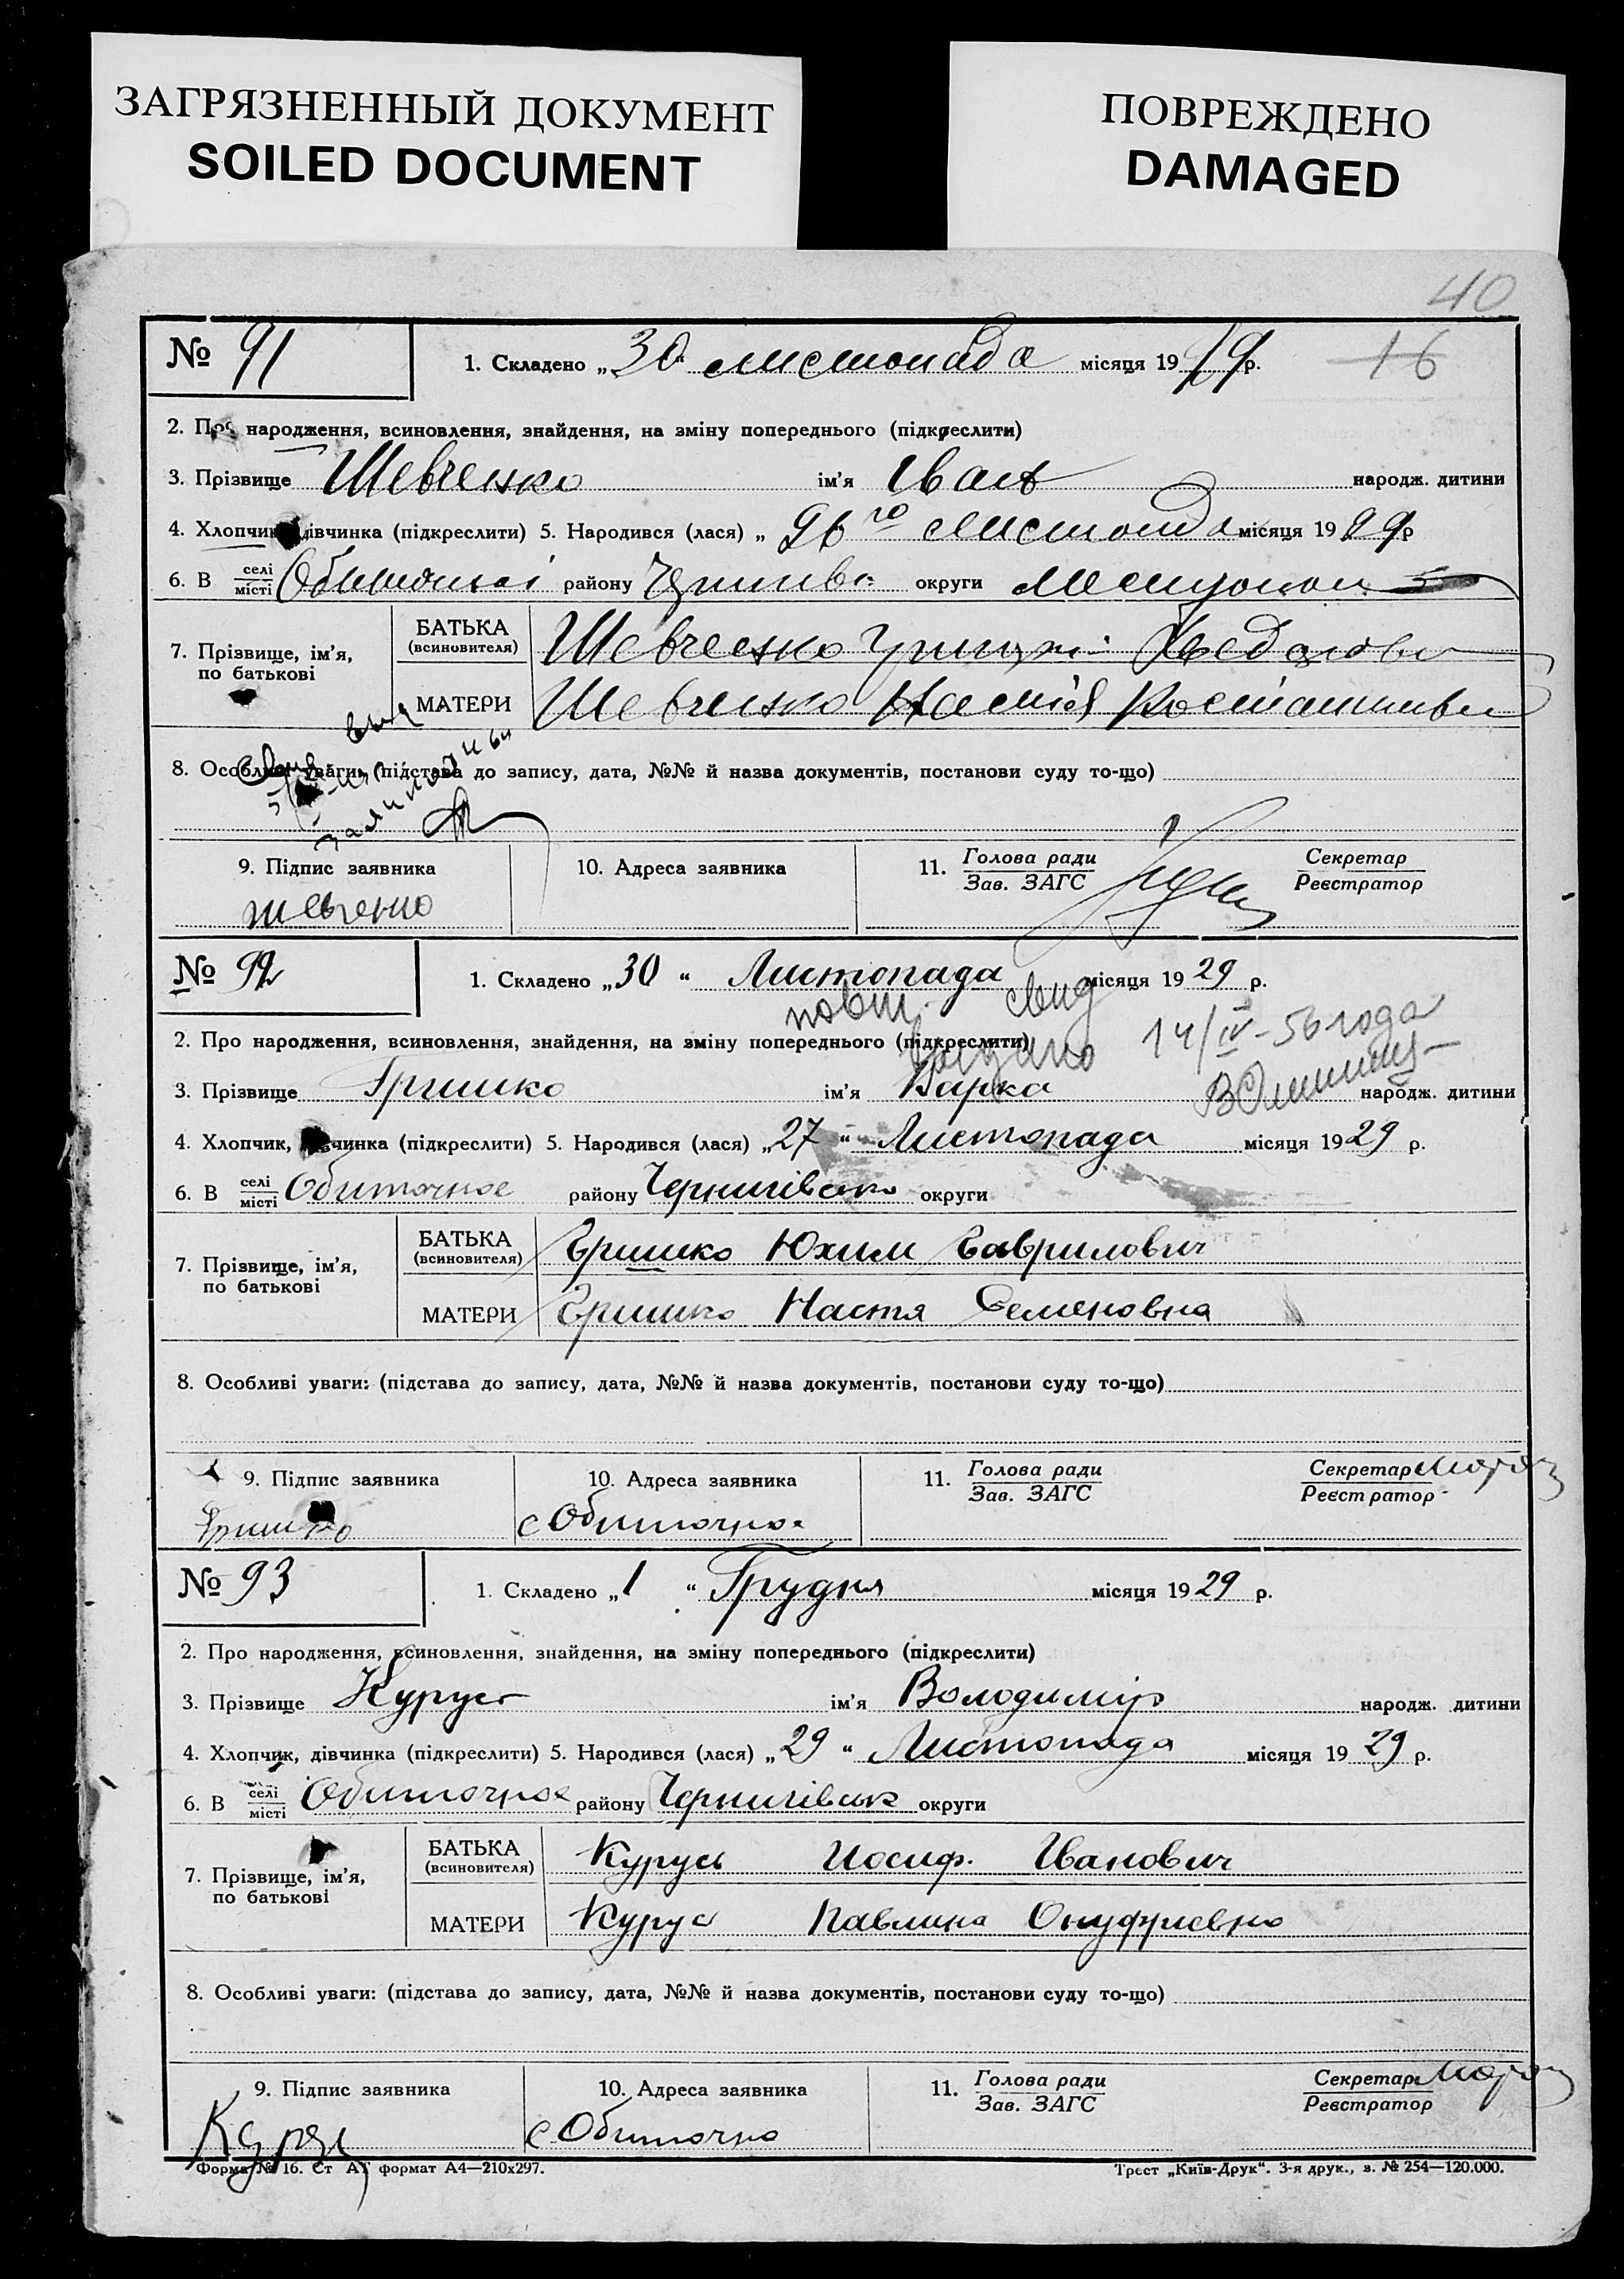 ЗАГРЯЗНЕННЫЙ ДОКУМЕНТ
SOILED DOCUMENT
ПОВРЕЖДЕНО
DAMAGED
40
16
№ 91
1. Складено „30“ листопада місяця 1929 р.
2. Про народження, всиновлення, знайдення, на зміну попереднього (підкреслити)
3. Прізвище Шевченко ім'я Іван народж. дитини
4. Хлопчик, дівчинка (підкреслити) 5. Народився (лася) „ 26го місяця 1929 р
6. В селі місті району округи
7. Прізвище, ім'я, по батькові
БАТЬКА (всиновителя) Шевченко
МАТЕРИ Шевченко Настя
8. Особливі уваги: (підстава до запису, дата, №№ й назва документів, постанови суду то-що)
9. Підпис заявника
10. Адреса заявника
11. Голова ради Зав. ЗАГС
Секретар Реєстратор
Шевченко
№ 92
1. Складено „30“ Листопада місяця 1929 р.
повт. свид
2. Про народження, всиновлення, знайдення, на зміну попереднього (підкреслити)
14/IV-56 года
3. Прізвище Гришко ім'я Варка народж. дитини
4. Хлопчик, дівчинка (підкреслити) 5. Народився (лася) „27“ Листопада місяця 1929 р.
6. В селі місті Обиточное району Чернигівсько округи
7. Прізвище, ім'я, по батькові
БАТЬКА (всиновителя) Гришко Юхим Гаврилович
МАТЕРИ Гришко Настя Семеновна
8. Особливі уваги: (підстава до запису, дата, №№ й назва документів, постанови суду то-що)
9. Підпис заявника
10. Адреса заявника
11. Голова ради Зав. ЗАГС
Секретар Реєстратор Мороз
Гришко
с Обиточное
№ 93
1. Складено „1“ Грудня місяця 1929 р.
2. Про народження, всиновлення, знайдення, на зміну попереднього (підкреслити)
3. Прізвище Курус ім'я Володимір народж. дитини
4. Хлопчик, дівчинка (підкреслити) 5. Народився (лася) „29“ Листопада місяця 1929 р.
6. В селі місті Обиточное району Чернигівськ округи
7. Прізвище, ім'я, по батькові
БАТЬКА (всиновителя) Курусь Иосиф. Іванович
МАТЕРИ Курус Павлина Онуфриевна
8. Особливі уваги: (підстава до запису, дата, №№ й назва документів, постанови суду то-що)
9. Підпис заявника
10. Адреса заявника
11. Голова ради Зав. ЗАГС
Секретар Реєстратор Мороз
с Обиточно
Форма № 16. Ст АТ формат А4—210х297.
Трест „Київ-Друк“. 3-я друк., з. № 254—120.000.